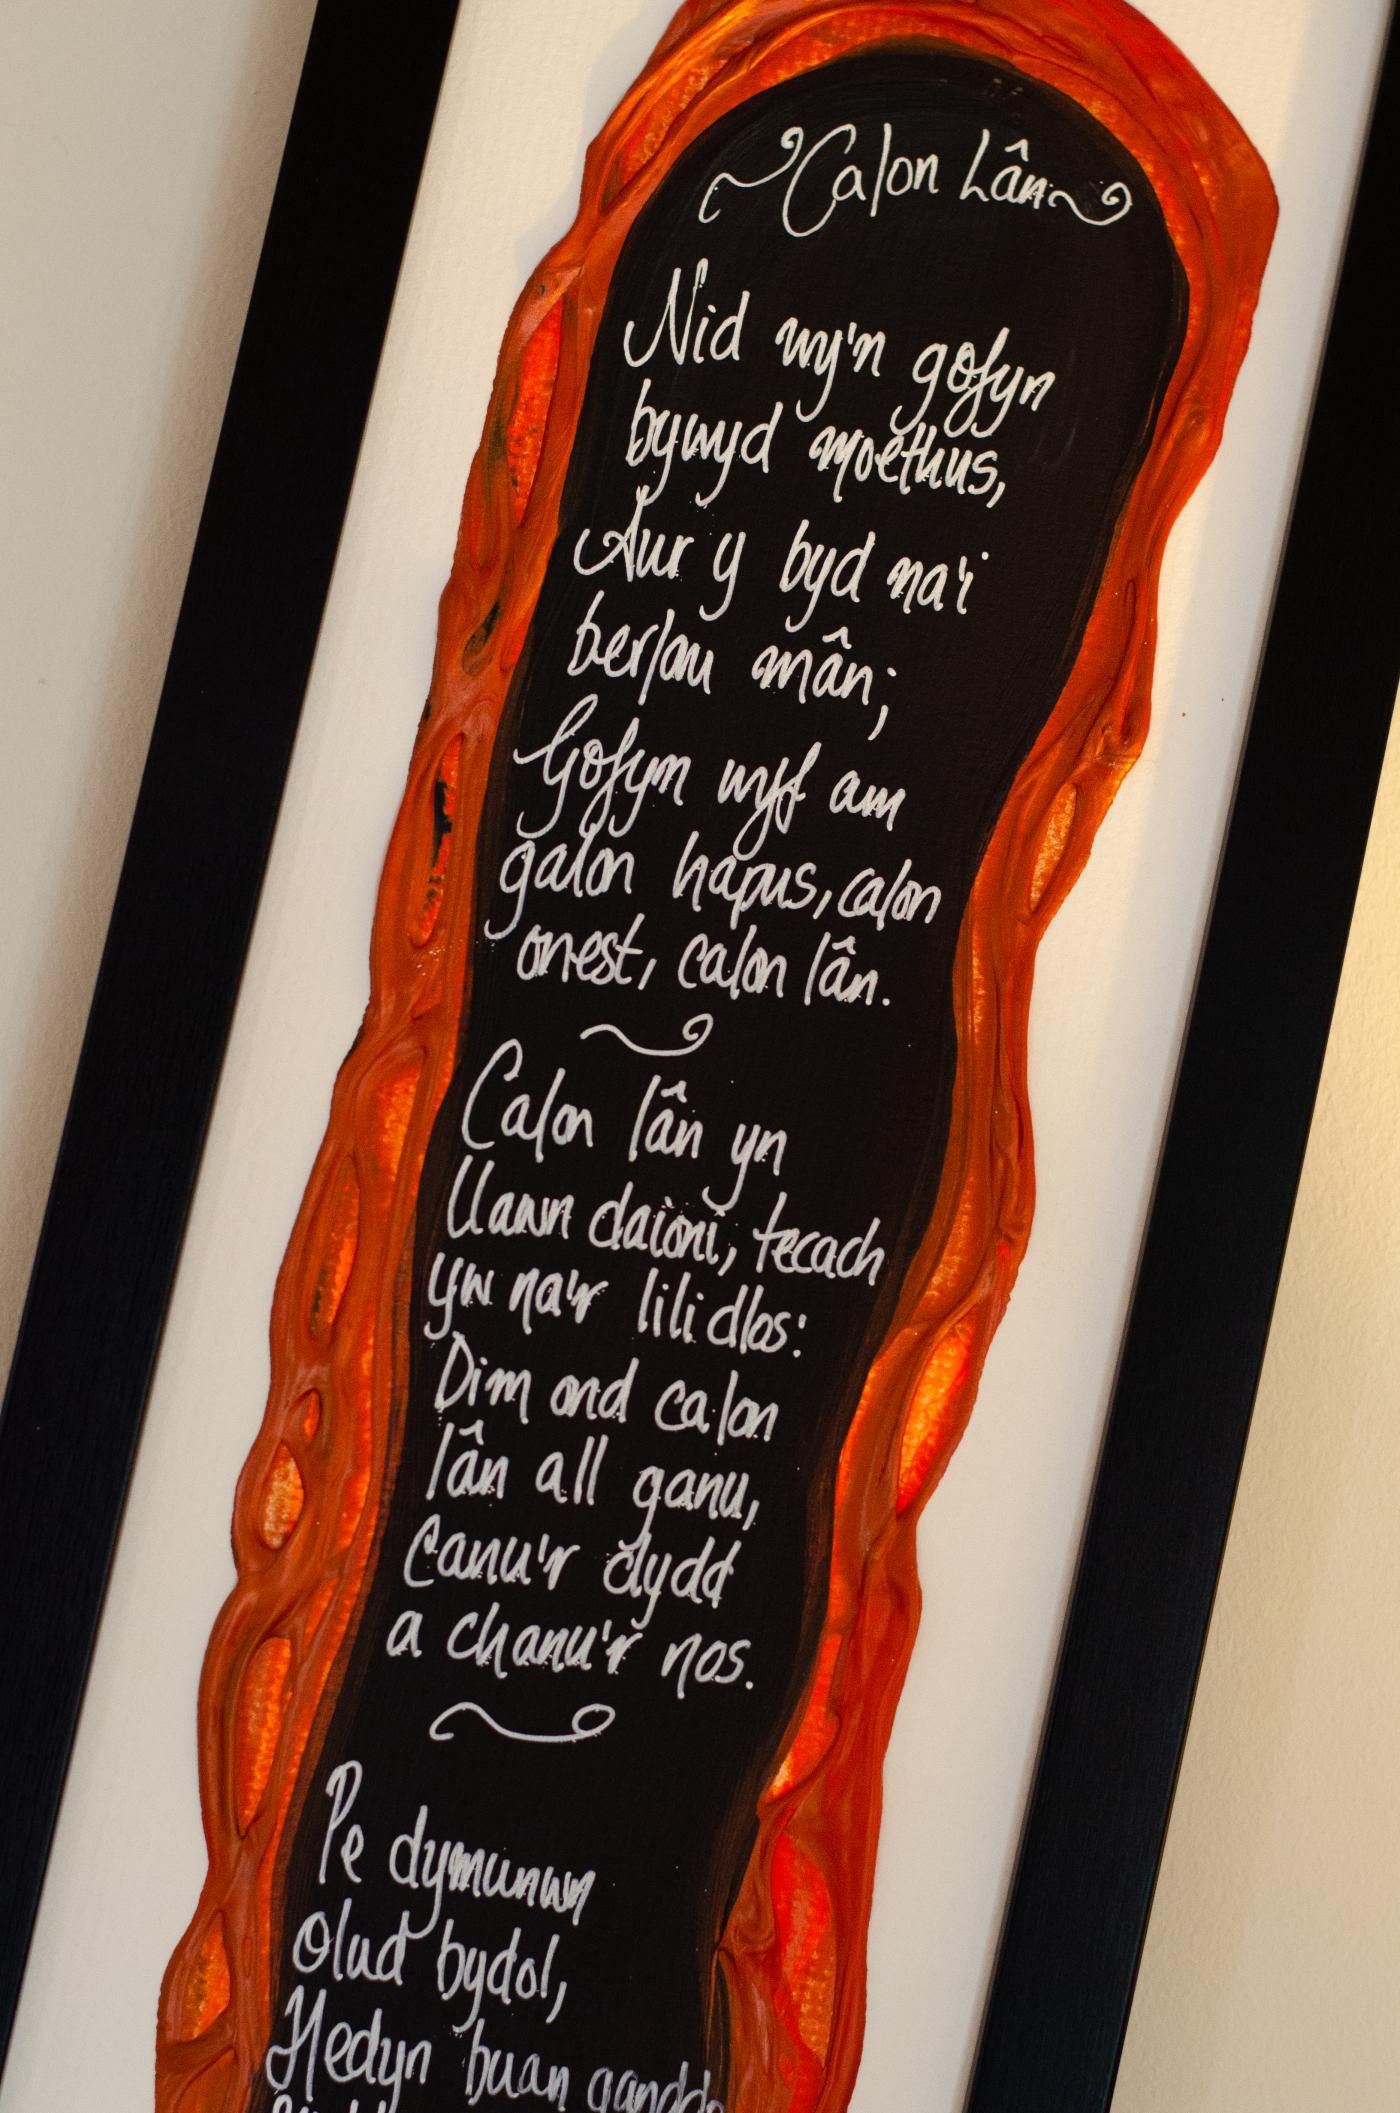 Calon Lân
Nid wy'n gofyn
bywyd moethus,
Aur y byd na'i
berlau mân;
Gofyn wyf am
galon hapus, calon
onest, calon lân.
Calon lân yn
llawn daioni, tecach
yw na'r lili dlos:
Dim ond calon
lân all ganu,
Canu'r dydd
a chanu'r nos.
Pe dymunwn
olud bydol,
Hedyn buan ganddo